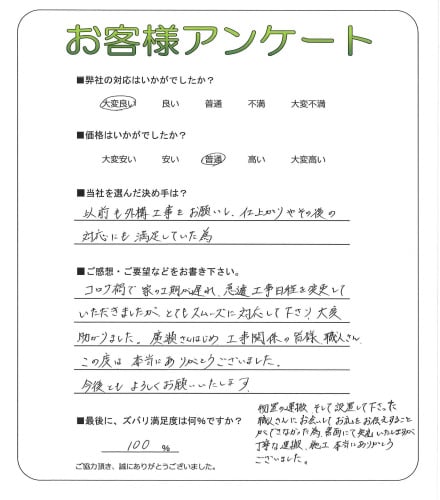 お客様アンケート
■弊社の対応はいかがでしたか?
大変良い 良い 普通 不満 大変不満
■価格はいかがでしたか?
大変安い 安い 普通 高い 大変高い
■当社を選んだ決め手は?
以前も外構工事をお願いし、仕上がりやその後の
対応にも満足していた為
■ご感想・ご要望などをお書き下さい。
コロナ禍で家の工期が遅れ、急遽工事日程を変更して
いただきましたが、とてもスムーズに対応して下さり、大変
助かりました。廣瀬さんはじめ工事関係の皆様、職人さん、
この度は本当にありがとうございました。
今後ともよろしくお願いいたします。
■最後に、ズバリ満足度は何%ですか?
100 %
ご協力頂き、誠にありがとうございました。
物置の運搬そして設置して下さった
職人さんにお会いしてお礼をお伝えすること
ができなかった為、書面にて失礼いたしますが
丁寧な運搬、施工本当にありがとう
ございました。